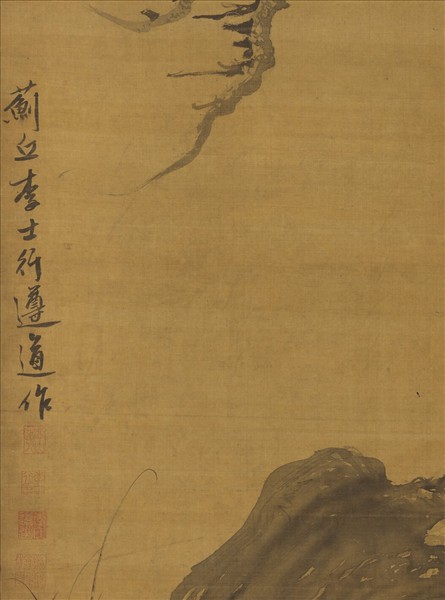 薊丘李士行遵道作